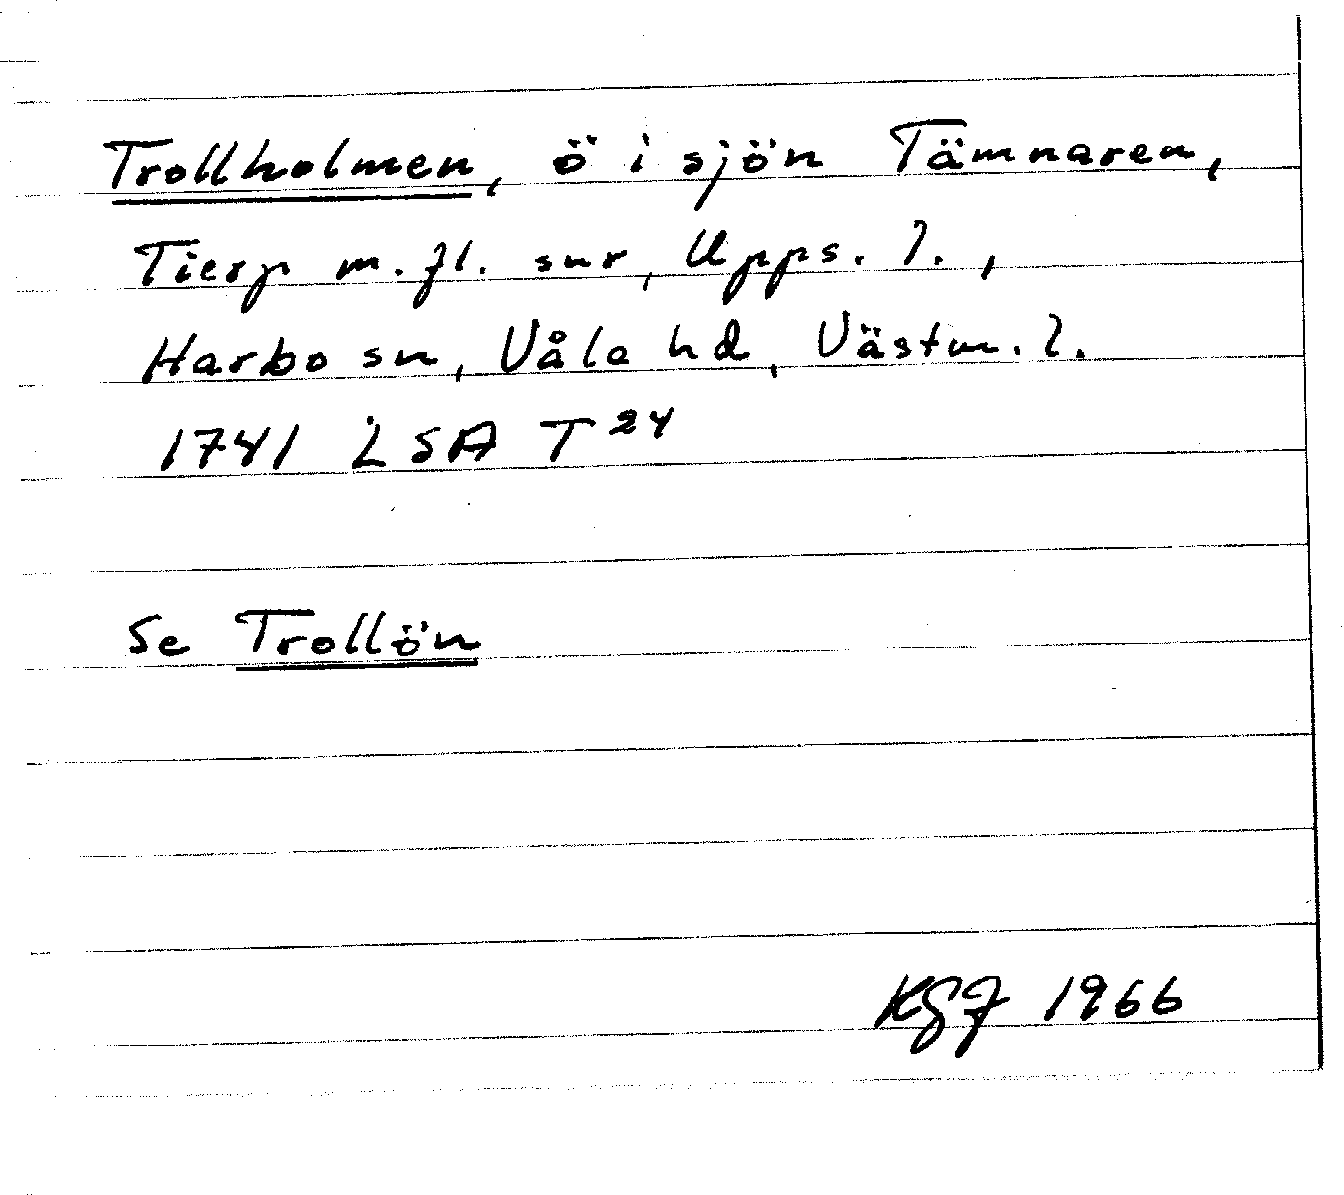 Trollholmen, ö i sjön Tämnaren,
Tierp m. fl. snr, Upps. l.,
Harbo sn, Våla hd, Västm. l.
1741 LSA T 24
Se Trollön
KGJ 1966